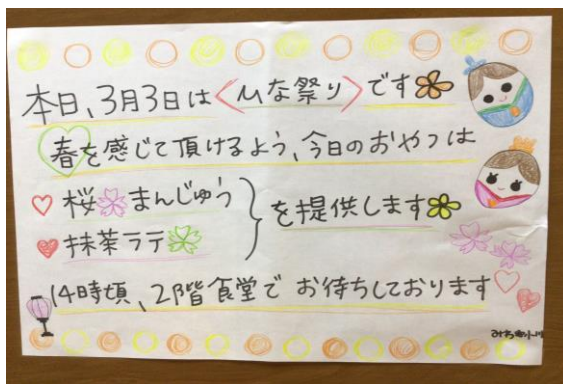 本日、3月3日は〈ひな祭り〉です
春を感じて頂けるよう、今日のおやつは
桜まんじゅう
抹茶ラテ
を提供します
14時頃、2階食堂でお待ちしております